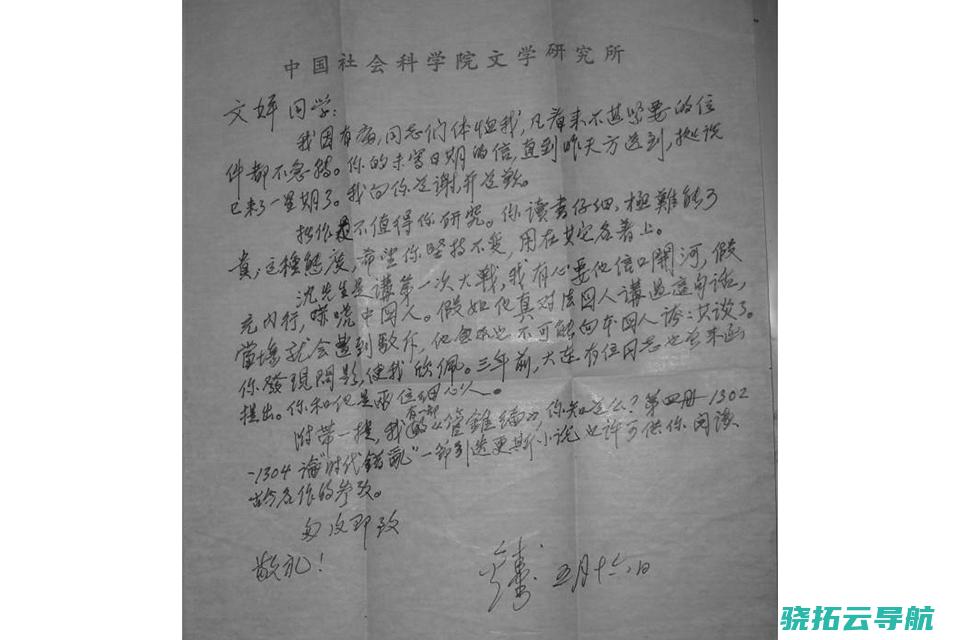 中国社会科学院文学研究所
文 同学:
我因有病,同志们体恤我,凡看来不甚紧要的信
件都不急转。你的未写日期的信,直到昨天方送到,据说
已来了一星期了。我向你道谢,并道歉。
拙作 不值得你研究。你读书仔细,極難能可
貴,这種態度,希望你坚持不变,用在其它名著上。
沈先生是講第一次大戰,我有心要他信口開河,假
充内行,嚇唬中國人。假如他真对法國人講過這句話,
當場就会遭到駁斥,他 也不可能向本國人誇誇其談了。
你發現問題,使我欣佩。三年前,大连有位同志也曾来函
提出。你和他是兩位細心人。
附带一提,我有一部《管錐編》,你知道么?第四册1302
-1304論“时代錯亂”一節引迭更斯小说,也许可供你阅读
古今名作的参攷。
匆 即致
敬礼!
五月十六日
骁拓云导航